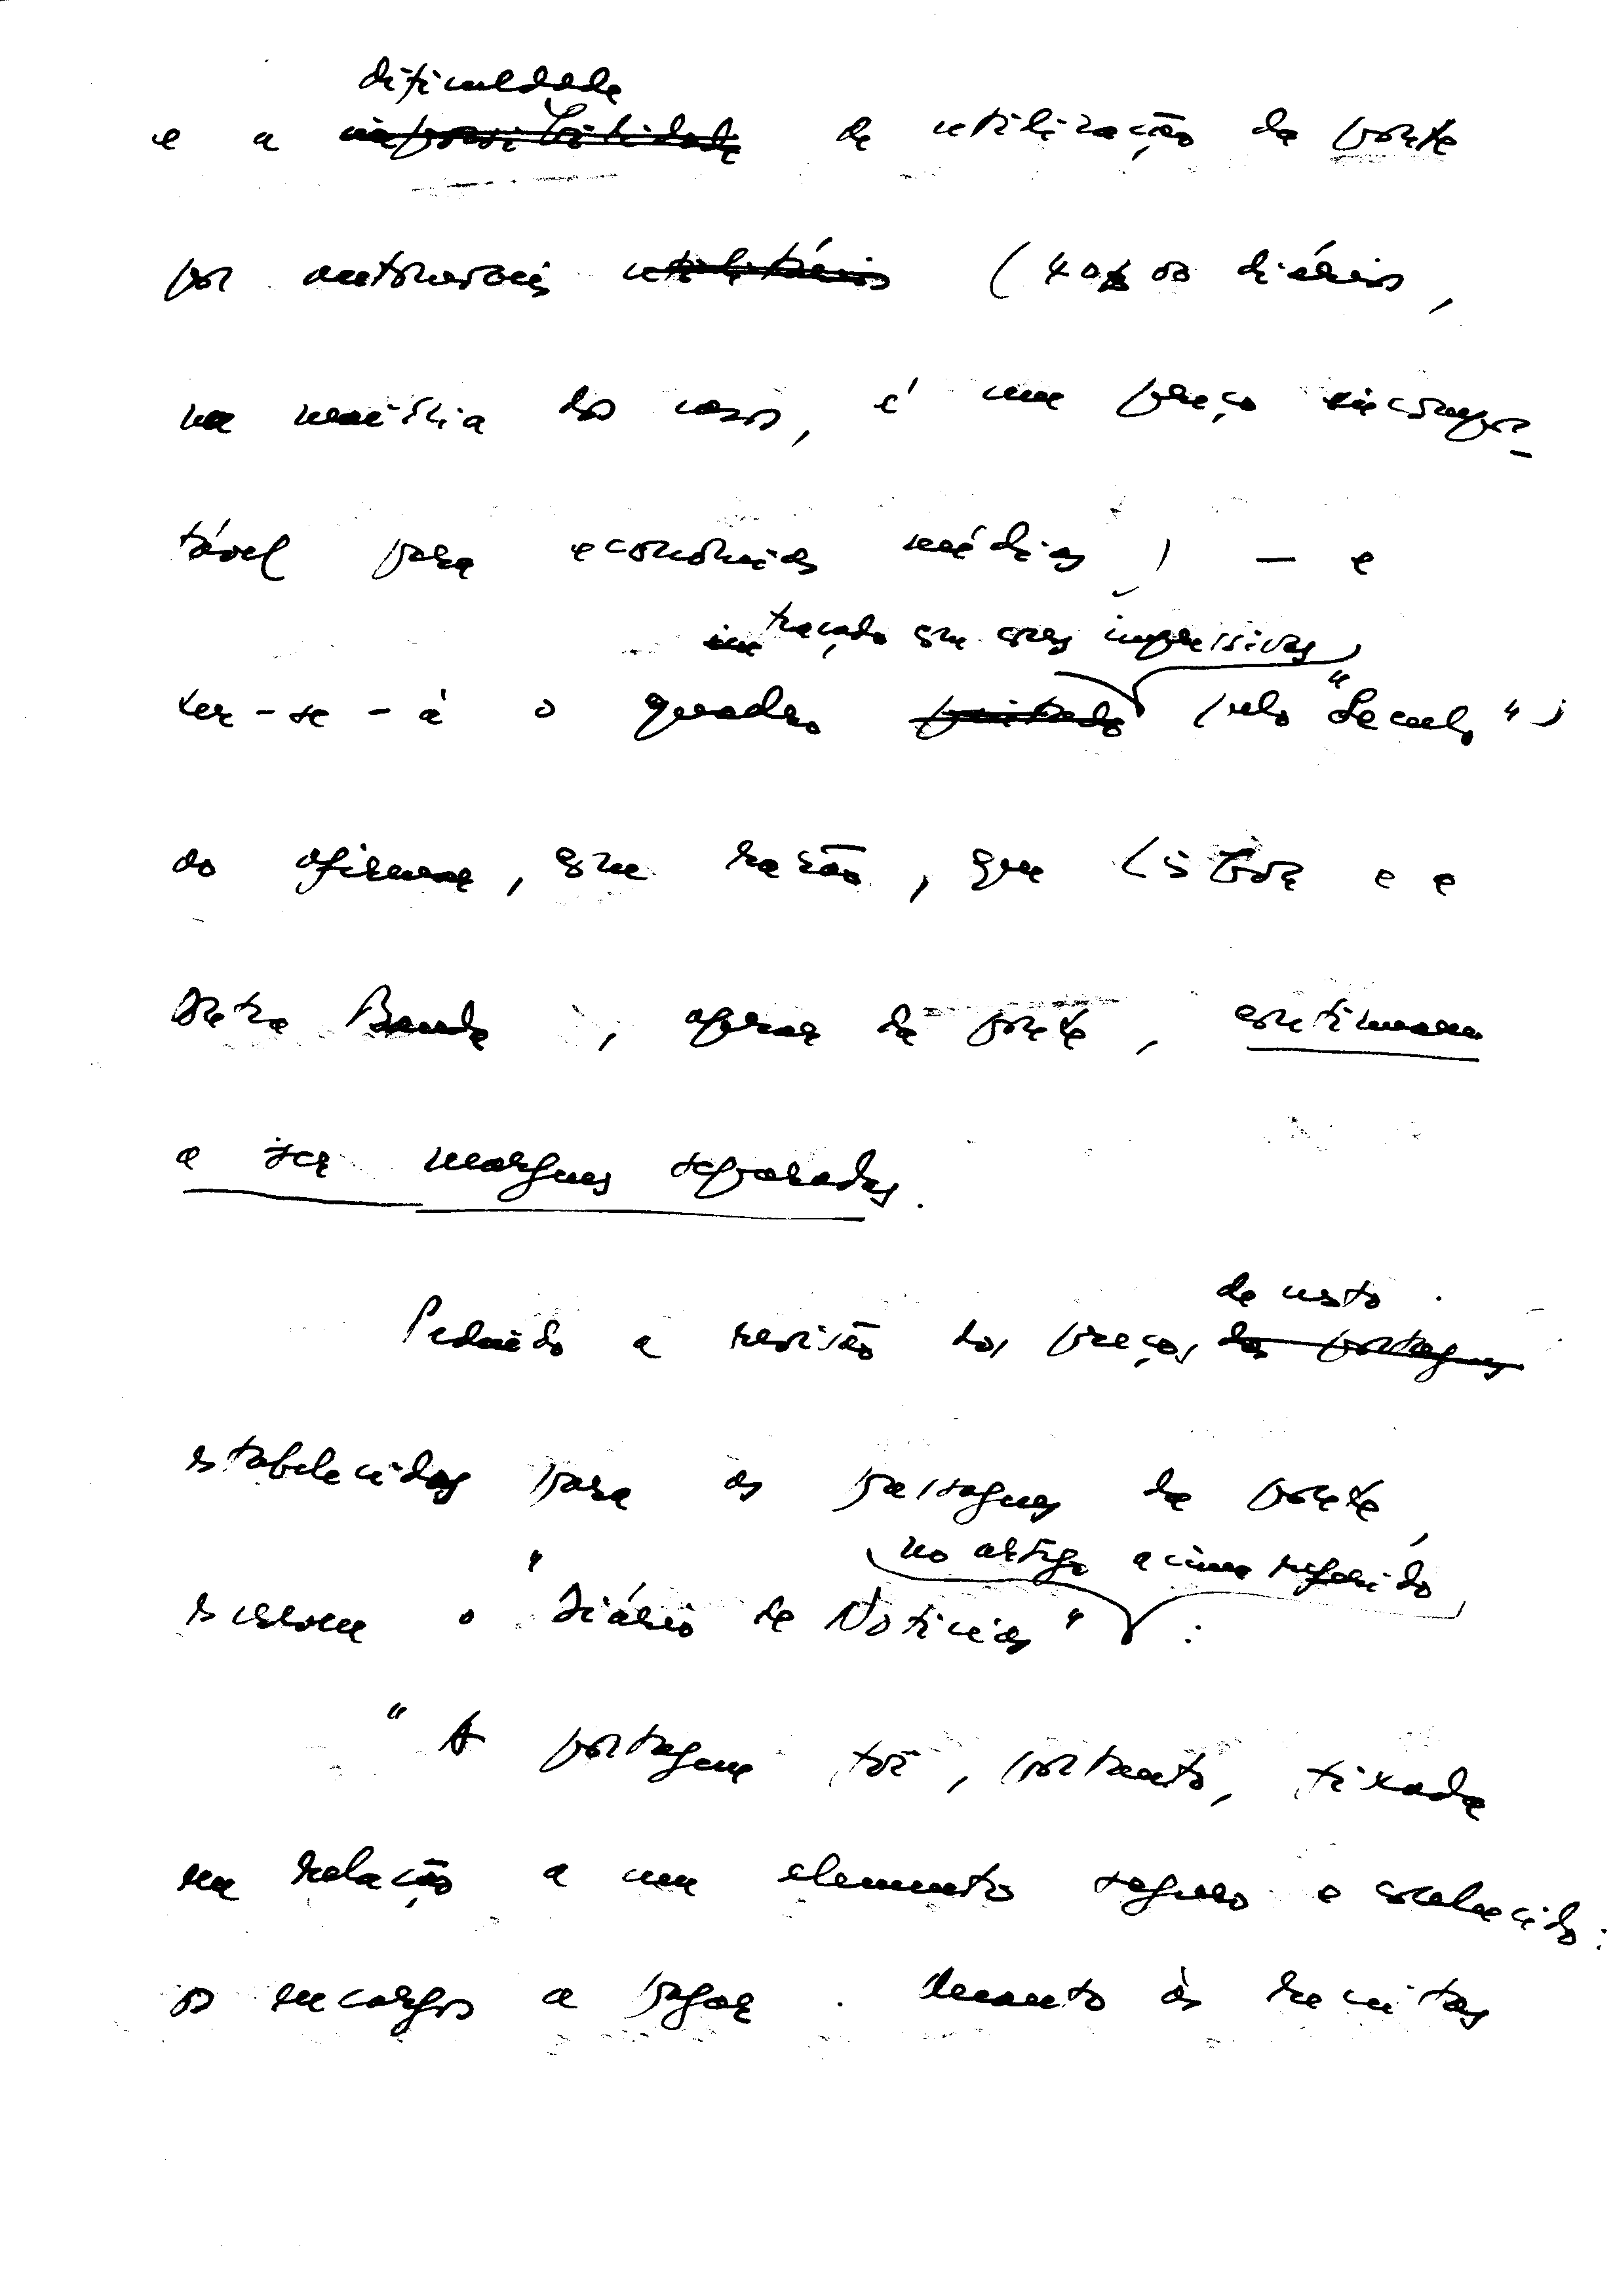 dificuldade
e a impossibilidade de utilização da ponte
por automóveis utilitários (40$00 diários,
na maioria dos casos, é um preço incompor-
tável para economias médias) — e
traçado em cores impressivas
ter-se-á o quadro pintado pelo "Século",
ao afirmar, com razão, que Lisboa e a
Outra Banda, apesar da ponte, continuam
a ser margens separadas.
de custo
Pedindo a revisão dos preços das portagens
estabelecidos para as passagens da ponte,
no artigo acima referido
escreve o "Diário de Notícias":
"A portagem foi, portanto, fixada
em relação a um elemento seguro e conhecido:
os encargos a pagar. Quanto às receitas